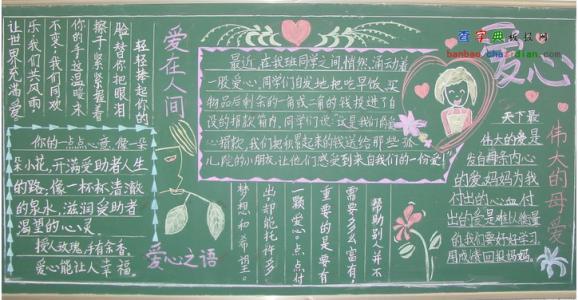 查字典板报网
banbao.chazidian.com
轻轻捧起你的
脸替你把眼泪
擦干紧紧握着
你的手这温暖永
不变:我们同欢
乐我们共风雨,
让世界充满爱
爱在人间
你的一点点心意,像一朵
朵小花,开满受助者人生
的路,像一杯杯清澈
的泉水,滋润受助者
渴望的心灵。
授人玫瑰,手有余香。
爱心能让人幸福。
爱心之语
最近,在我班同学之间悄然涌动着
一股爱心,同学们自发地把吃早饭、买
物品后剩余的一角或二角的钱投进了自
设的捐款箱内,同学们说“这是我们的爱
心捐款,我们把积累起来的钱送给那些孤
儿院的小朋友,让他们感受到来自我们的一份爱!”
帮助别人并不
需要多么富有,
重要的是要有
一颗爱心。点点付
出,却能托许多
梦想和希望。
爱心
天下最
伟大的爱是
发自母亲内心
的爱,妈妈为我
付出的心血付
出的爱是难以衡量
的我们要好好学习
用成绩回报妈妈。
伟大的母爱